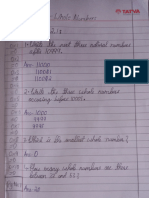 Whole Numbers
1- Write the next three natural numbers
after 10999.
Ans- 11000
11001
11002
2- Write the three whole numbers
occurring before 10001.
Ans- 10000
9999
9998
3- Which is the smallest whole number?
Ans- 0
4- How many whole numbers are there
between 32 and 53?
Ans- 20